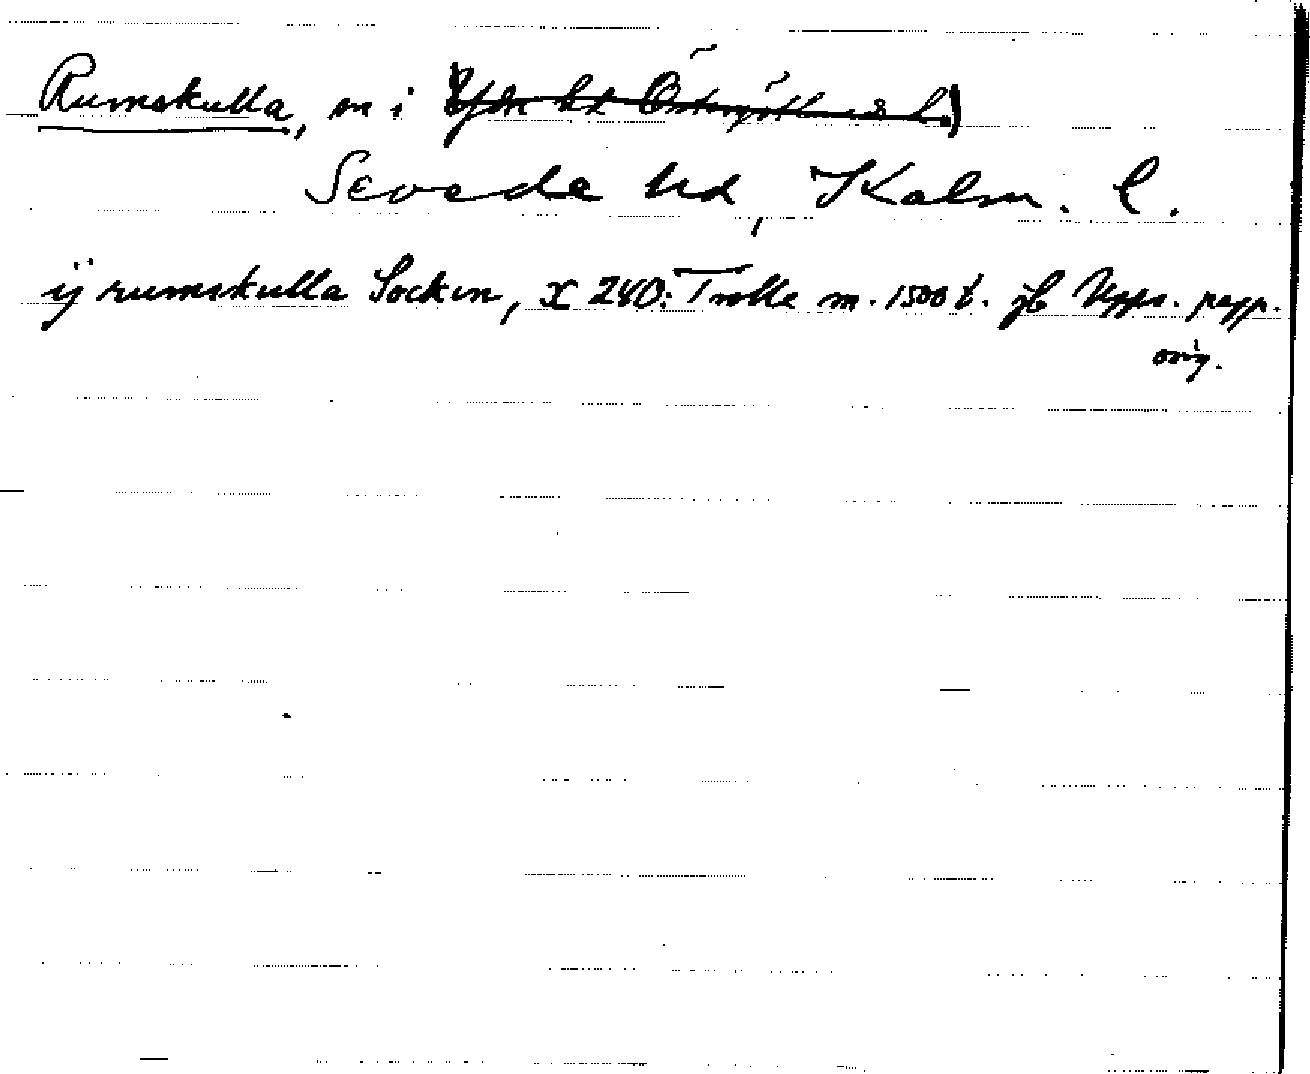 Rumskulla, sn i Ydre hd Östergötlands l.
Sevede hd, Kalm. l.
ij rumskulla Sockin, x 240: Trolle m. 1500 t. jb Upps. papp.
orig.